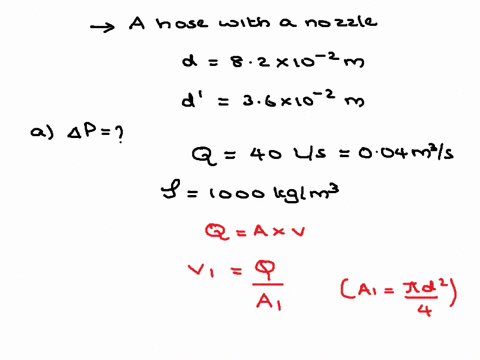 → A hose with a nozzle
d = 8.2 × 10⁻² m
d' = 3.6 × 10⁻² m
a) ΔP = ?
Q = 40 L/s = 0.04 m³/s
ρ = 1000 kg/m³
Q = A × V
V₁ = Q / A₁ (A₁ = πd² / 4)